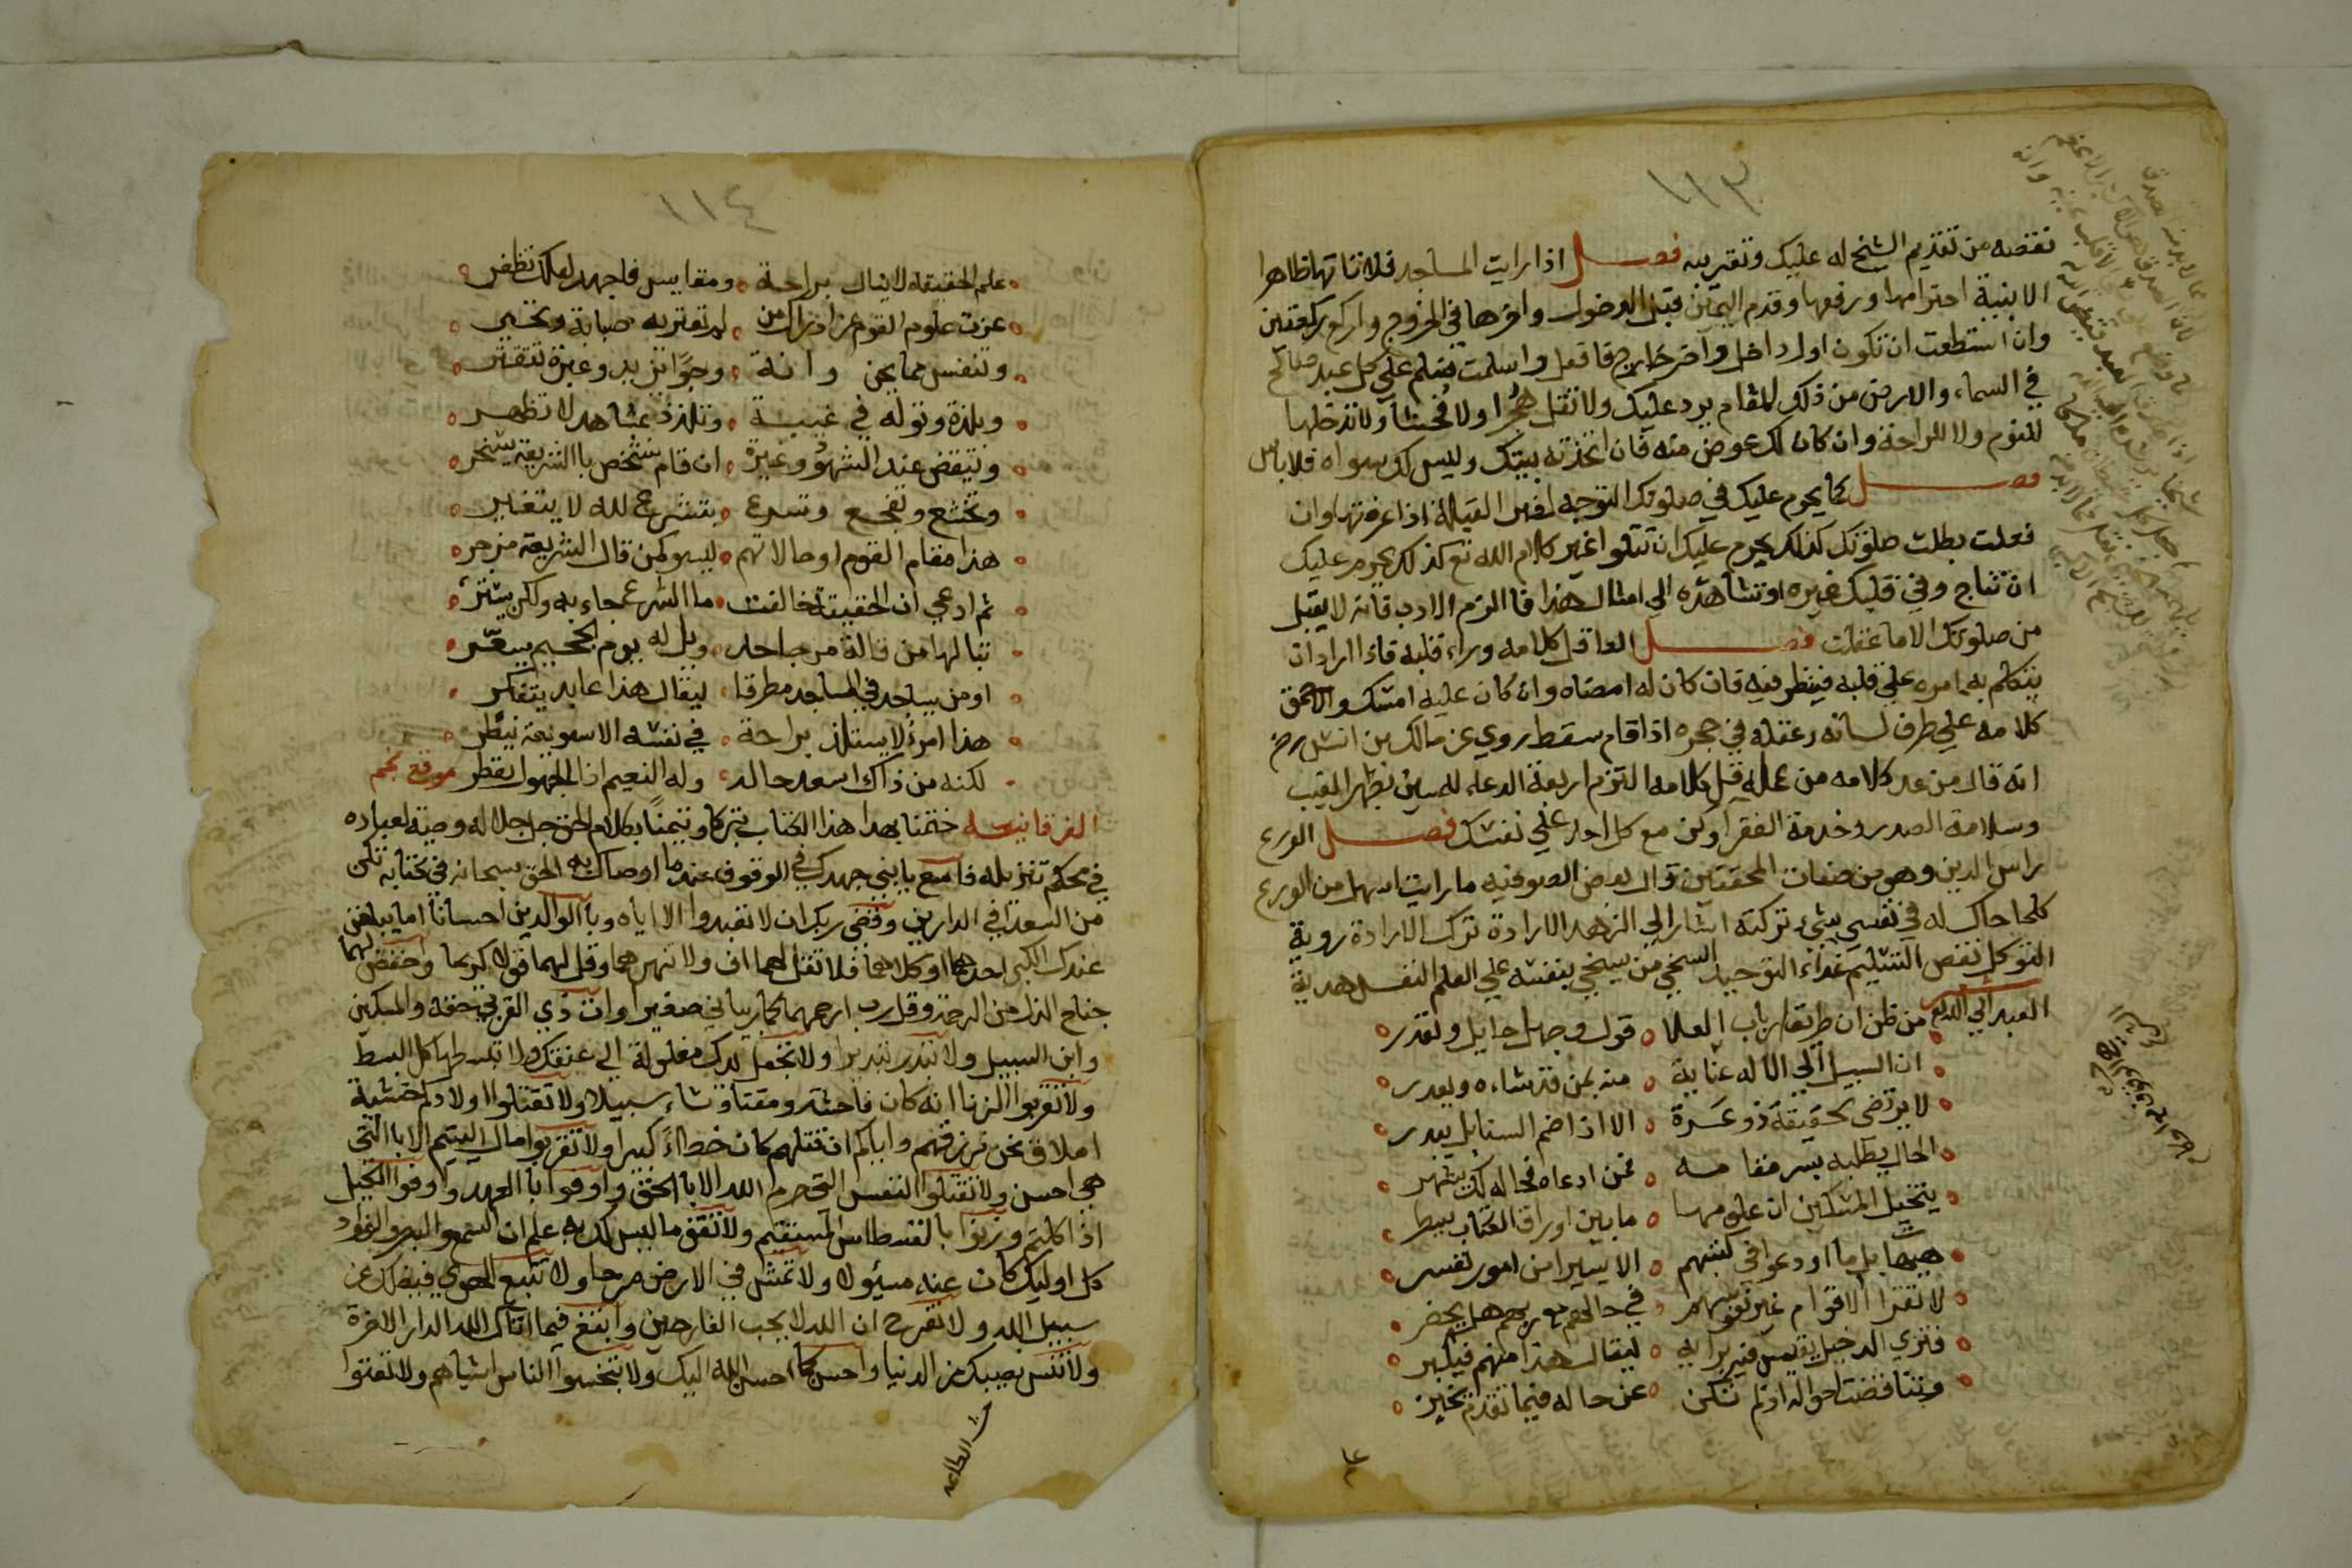 ١١٣
نقصه من تقديم الشيخ له عليك وتقريبه فصل اذا رايت المساجد فلا تاتها ظاهرا
الابنية احترامها ورفعها وقدم اليمين قبل الدخول واخرها في الخروج واركع ركعتين
وان استطعت ان تكون اول داخل وآخر خارج فافعل واسلمت فسلم علي كل عبد صالح
في السماء والارض من ذلك المقام يرد عليك ولا تقل هجرا ولا فحشا ولا تدخلها
للنوم ولا للراحة وان كان لك عوض منه فان اتخذته بيتك وليس لك سواه فلا باس
فصل كما يحرم عليك في صلوتك التوجه لغير القبلة اذا عرفتها وان
فعلت بطلت صلوتك كذلك يحرم عليك ان تتلوا غير كلام الله تع كذلك يحرم عليك
ان تناج وفي قلبك غيره او تشاهده الي امثال هذا فالزم الادب فانه لا يقبل
من صلوتك الا ما عقلت فصل العاقل كلامه وراء قلبه فاذا اراد ان
يتكلم به امره علي قلبه فينظر فيه فان كان له امضاه وان كان عليه امسك والاحمق
كلامه علي طرف لسانه وعقله في حجره اذا قام سقط روي عن مالك بن انس رض
انه قال من عد كلامه من عمله قل كلامه التزم اربعة الدعاء للمسلمين بظهر الغيب
وسلامة الصدر وخدمة الفقرا وكن مع كل احد علي نفسك فصل الورع
راس الدين وهو من صفات المحققين قال بعض الصوفيه ما رايت اسهل من الورع
كلما حاك له في نفسي شيء تركته اشار الي الزهد الارادة ترك الارادة روية
التوكل نقص التسليم غذاء التوحيد السخي من سخي بنفسه علي العلم النفس هدية
العبد الي الله تع من ظن ان طريق ارباب العلا ه قول وجهل حايل وتعذر
ان السبيل الي الاله عناية ه منه بمن قد شاءه ويعذر
لا يرتضى بحقيقة ذو عسرة الا اذا ضم السنابل بيدر
الحال يطلبه بسر مقامه ه فمن ادعاه فحاله لك يشهر
يتخيل المسكين ان علومها ه ما بين اوراق الكتاب يسطر
هيهات بل ما اودعوا في كتبهم ه الا يسيرا من امور تفسر
لا تقرا الاقوام غير نفوسهم في حالهم مع ربهم هل يحضر
فتري الدخيل يقيس فيه برايه ه ليقال هذا منهم فيكبر
وتناقضت احواله اذ لم تكن ه عن حاله فيما تقدم تخبر
١١٤
علم الحقيقة لا ينال براحة ومقايس فاجهد لعلك تظفر
عزت علوم القوم عن ادراك من لم تعتريه صبابة وتحير
وتنفس مما يجن وانة وجوًا تزيد وعبرة تتفجر
وبلذة وتوله في غيبة وتلذذ بمشاهد لا تظهر
وتقبض عند الشهود وغيرة ان قام شخص بالشريعة يسخر
وتخشع وتفجع وتسرع بتشرع لله لا يتغير
هذا مقام القوم او حالاتهم ليسوا كمن قال الشريعة مزجر
ثم ادعي ان الحقيقة خالفت ما الشرع جاء به ولكن يستر
تبا لها من قالة من جاحد ويل له يوم الجحيم يسعّر
او من يساجد في المساجد مطرقا ليقال هذا عابد يتفكر
هذا امرؤ لا يستلذ براحة في نفسه الا سويعة ينظر
لكنه من ذاك اسعد حاله وله النعيم اذا الجهول يفطر موقع نجم
الفرقانيه ختمنا بهذا هذا الكتاب تبركا وتيمنًا بكلام الحق جل جلاله وصية لعباده
في محكم تنزيله فاسمع يا بني جهدك في الوقوف عند ما اوصاك به الحق سبحانه في كتابه تكن
من السعدا في الدارين وقضى ربك ان لا تعبدوا الا اياه وبالوالدين احسانا اما يبلغن
عندك الكبر احدهما او كلاهما فلا تقل لهما اف ولا تنهرهما وقل لهما قولا كريما واخفض لهما
جناح الذل من الرحمة وقل رب ارحمهما كما ربياني صغيرا وات ذي القربي حقه والمسكين
وابن السبيل ولا تبذر تبذيرا ولا تجعل يدك مغلولة الي عنقك ولا تبسطها كل البسط
ولا تقربوا الزنا انه كان فاحشه ومقتا وساء سبيلا ولا تقتلوا اولادكم خشية
املاق نحن نرزقهم واياكم ان قتلهم كان خطاءً كبيرا ولا تقربوا مال اليتيم الا بالتي
هي احسن ولا تقتلوا النفس التي حرم الله الا بالحق واوفوا بالعهد واوفوا الكيل
اذا كلتم وزنوا بالقسطاس المستقيم ولا تقف ما ليس لك به علم ان السمع والبصر والفواد
كل اوليك كان عنه مسئولا ولا تمش في الارض مرحا ولا تتبع الهوي فيضلك عن
سبيل الله ولا تفرح ان الله لا يحب الفارحين وابتغ فيما اتاك الله الدار الاخرة
ولا تنس نصيبك من الدنيا واحسن كما احسن الله اليك ولا تبخسوا الناس اشياهم ولا تعثوا